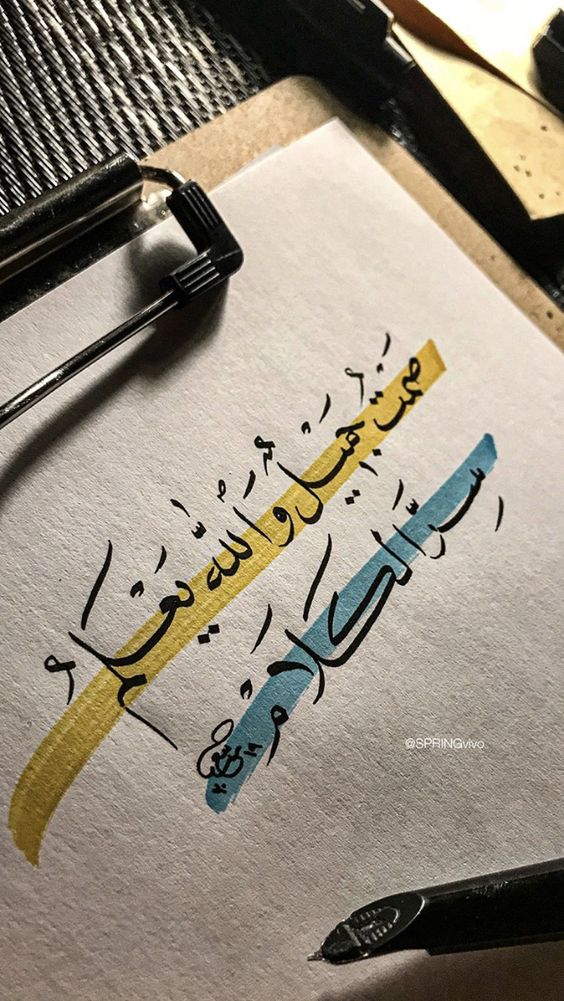 صَمْتٌ جَمِيلٌ وَاللَّهُ يَعْلَمُ
سِرَّ الكَلَامْ
@SPRINGvivo